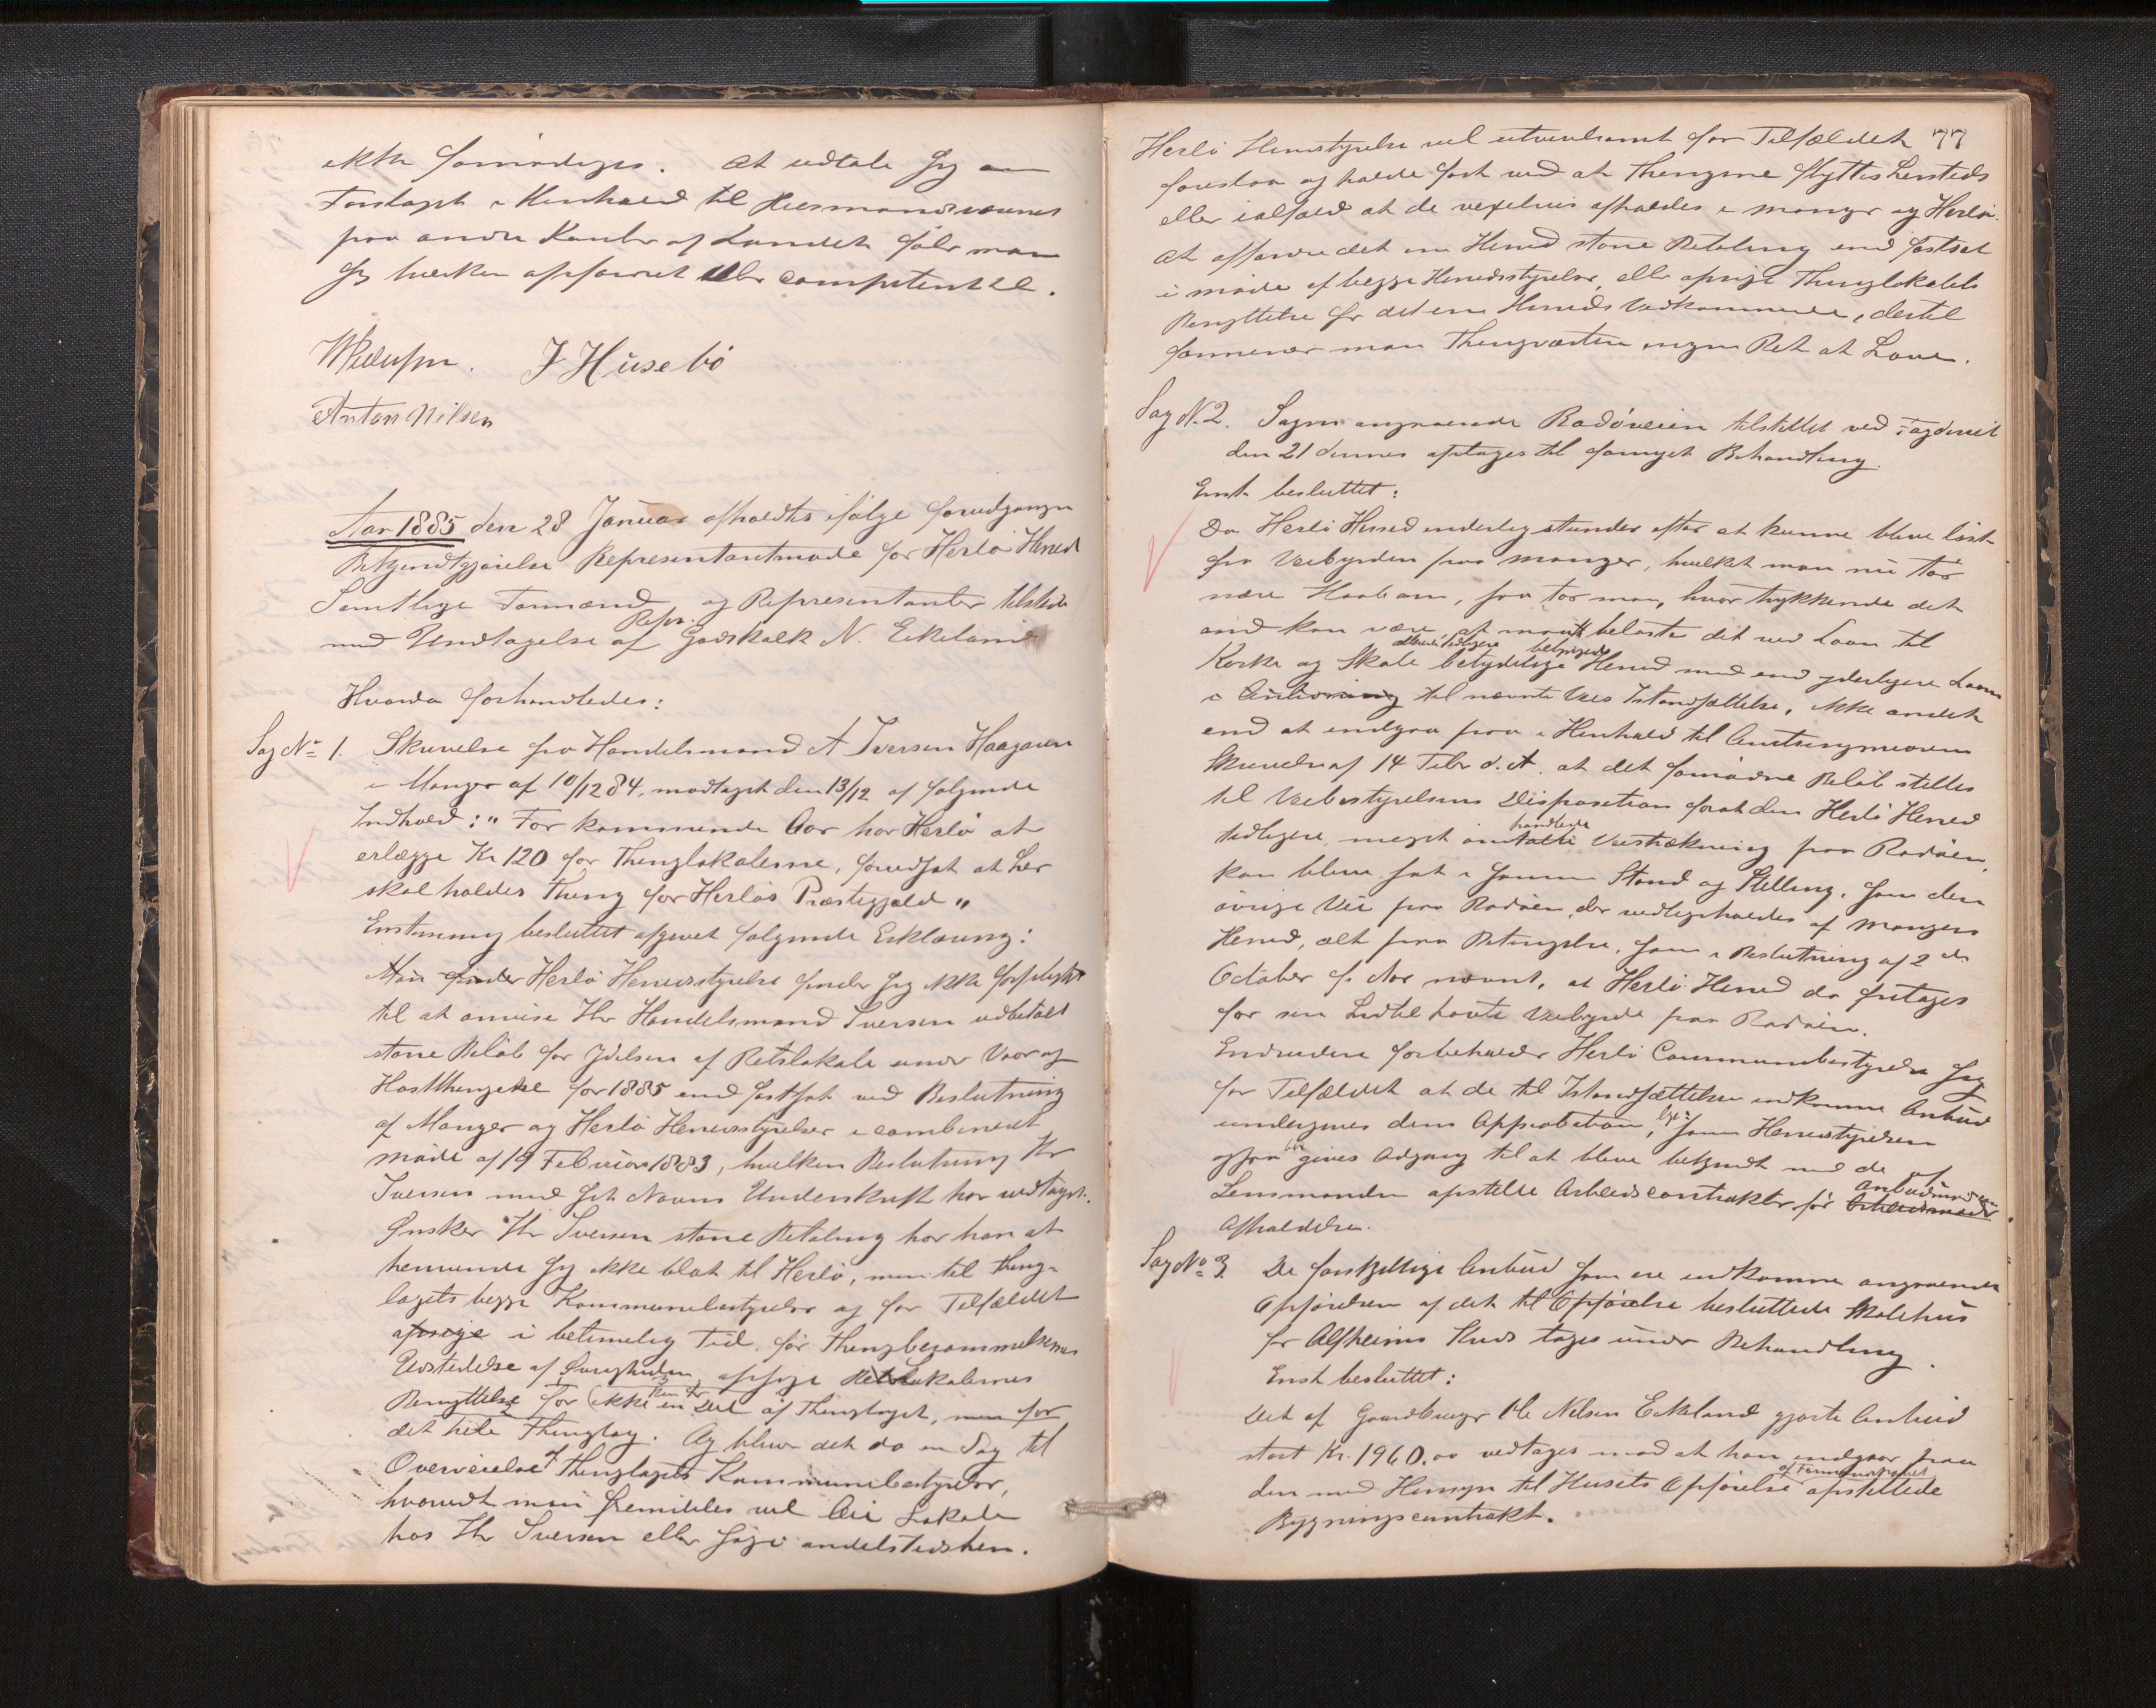 ikke formodiges. At udtale sig om
Forslaget i Henhold til Hæsmandsvæsenet
paa andre Kanter af Landet føler man
sig hverken opfordret eller competent til.
J Husebö
Anton Nilsen
Aar 1885 den 28 Januar afholdtes ifølge forudgangen
Bekjendtgjörelse Repræsentantmöde for Herlö Herred
Samtlige Formænd og Repræsentanter tilstede
Repr.
med Undtagelse af Godskalk N. Eikeland
Hvorda forhandledes:
Sag No 1. Skrivelse fra Handelsmand A Iversen Haagaven
i Manger af 10/12 84, modtaget den 13/12 af følgende
Indhold: "For kommende Aar har Herlö at
erlægge Kr 120 for Thinglokalerne, forudsat at her
skal holdes Thing for Herlös Præstegjæld"
Enstemmig besluttet afgivet følgende Erklæring:
Man finder Herlö Herredsstyrelse finder sig ikke forpligtet
til at anvise Hr Handelsmand Iversen udbetalt
större Belöb for Ydelsen af Retslokale under Vaar og
Höstthingene for 1885 end fastsat ved Beslutning
af Manger og Herlö Herredsstyrelser i combineret
möde af 19 Februar 1883, hvilken Beslutning Hr
Iversen med sit Navns Underskrift har vedtaget.
Ønsker Hr Iversen större Betaling har han at
henvende sig ikke blot til Herlö, men til Thing-
lagets begge Kommunebestyrelser og for Tilfældet
opsige i betimelig Tid, för Thingberammelsens
Udstedelse af Övrigheden, opsige Retslokalernes
Benyttelse for ikke kun for en Deel af Thinglaget, men for
det hele Thinglag. Og bliver det da en Sag til
Overveielse af Thinglagets Kommunebestyrelser,
hvorvidt man fremdeles vil leie Lokale
hos Hr Iversen eller söge andetsteds hen.
77
Herlö Herredstyrelse vil utvivlsomt for Tilfældet
foreslaa og holde fast ved at Thingene flyttes hersteds
eller ialfald at de vexelvis afholdes i Manger og Herlö.
At affordre det ene Herred större Betaling end fastsat
i möde af begge Herredsstyrelser, eller opsige Thinglokalets
Benyttelse for det ene Herreds Vedkommende, dertil
formener man Thingværten ingen Ret at have.
Sag N. 2. Sagen angaaende Radöveien tilstillet ved Fogderiet
den 21 dennes optages til fornyet Behandling.
Enst. besluttet:
Da Herlö Herred inderlig stunder efter at kunne blive löst
fra Veibyrden paa Manger, hvilket man nu tör
nære Haab om, saa tör man, hvor trykkende det
end kan være at maatte belaste det ved Laan til
allerede tidligere betyngede
Kirke og Skole betydelige Herred med end yderligere Laan
i Anledning til nævnte Veis Istandsættelse, ikke andet
end at indgaa paa i Henhold til Amtsingeniörens
Skrivelse af 14 Febr d. A. at det fornödne Belöb stilles
til Veibestyrelsens Disposition forat den Herlö Herred
handlede
tidligere meget omtalte Veistrækning paa Radöen
kan blive sat i samme Stand og Stilling, som den
övrige Vei paa Radöen, der vedligeholdes af Mangers
Herred, alt paa Betingelse, som i Beslutning af 2 den
October f. Aar nævnt, at Herlö Herred da fritages
for sin hidtil havte Veibyrde paa Radöen.
Endvidere forbeholder Herlö Communebestyrelse sig
for Tilfældet at de til Istandsættelsen indkomne Anbud
undergives dens Approbation, ligesom Herredstyrelsen
ogsaa gives Adgang til at blive bekjendt med de af
Lensmanden opstillede Arbeidscontrakter för Anbudsmödernes
Afholdelse.
Sag No 3. De forskjellige Anbud som ere indkomne angaaende
Opförelsen af det til Opförelse besluttede Skolehus
for Alfheims Kreds tages under Behandling.
Enst besluttet:
Det af Gaardbruger Ole Nilsen Eikeland gjorte Anbud
stort Kr. 1960.00 vedtages mod at han indgaar paa
af Formandskabet
den med Hensyn til Husets Opförelse opstillede
Bygningscontrakt.